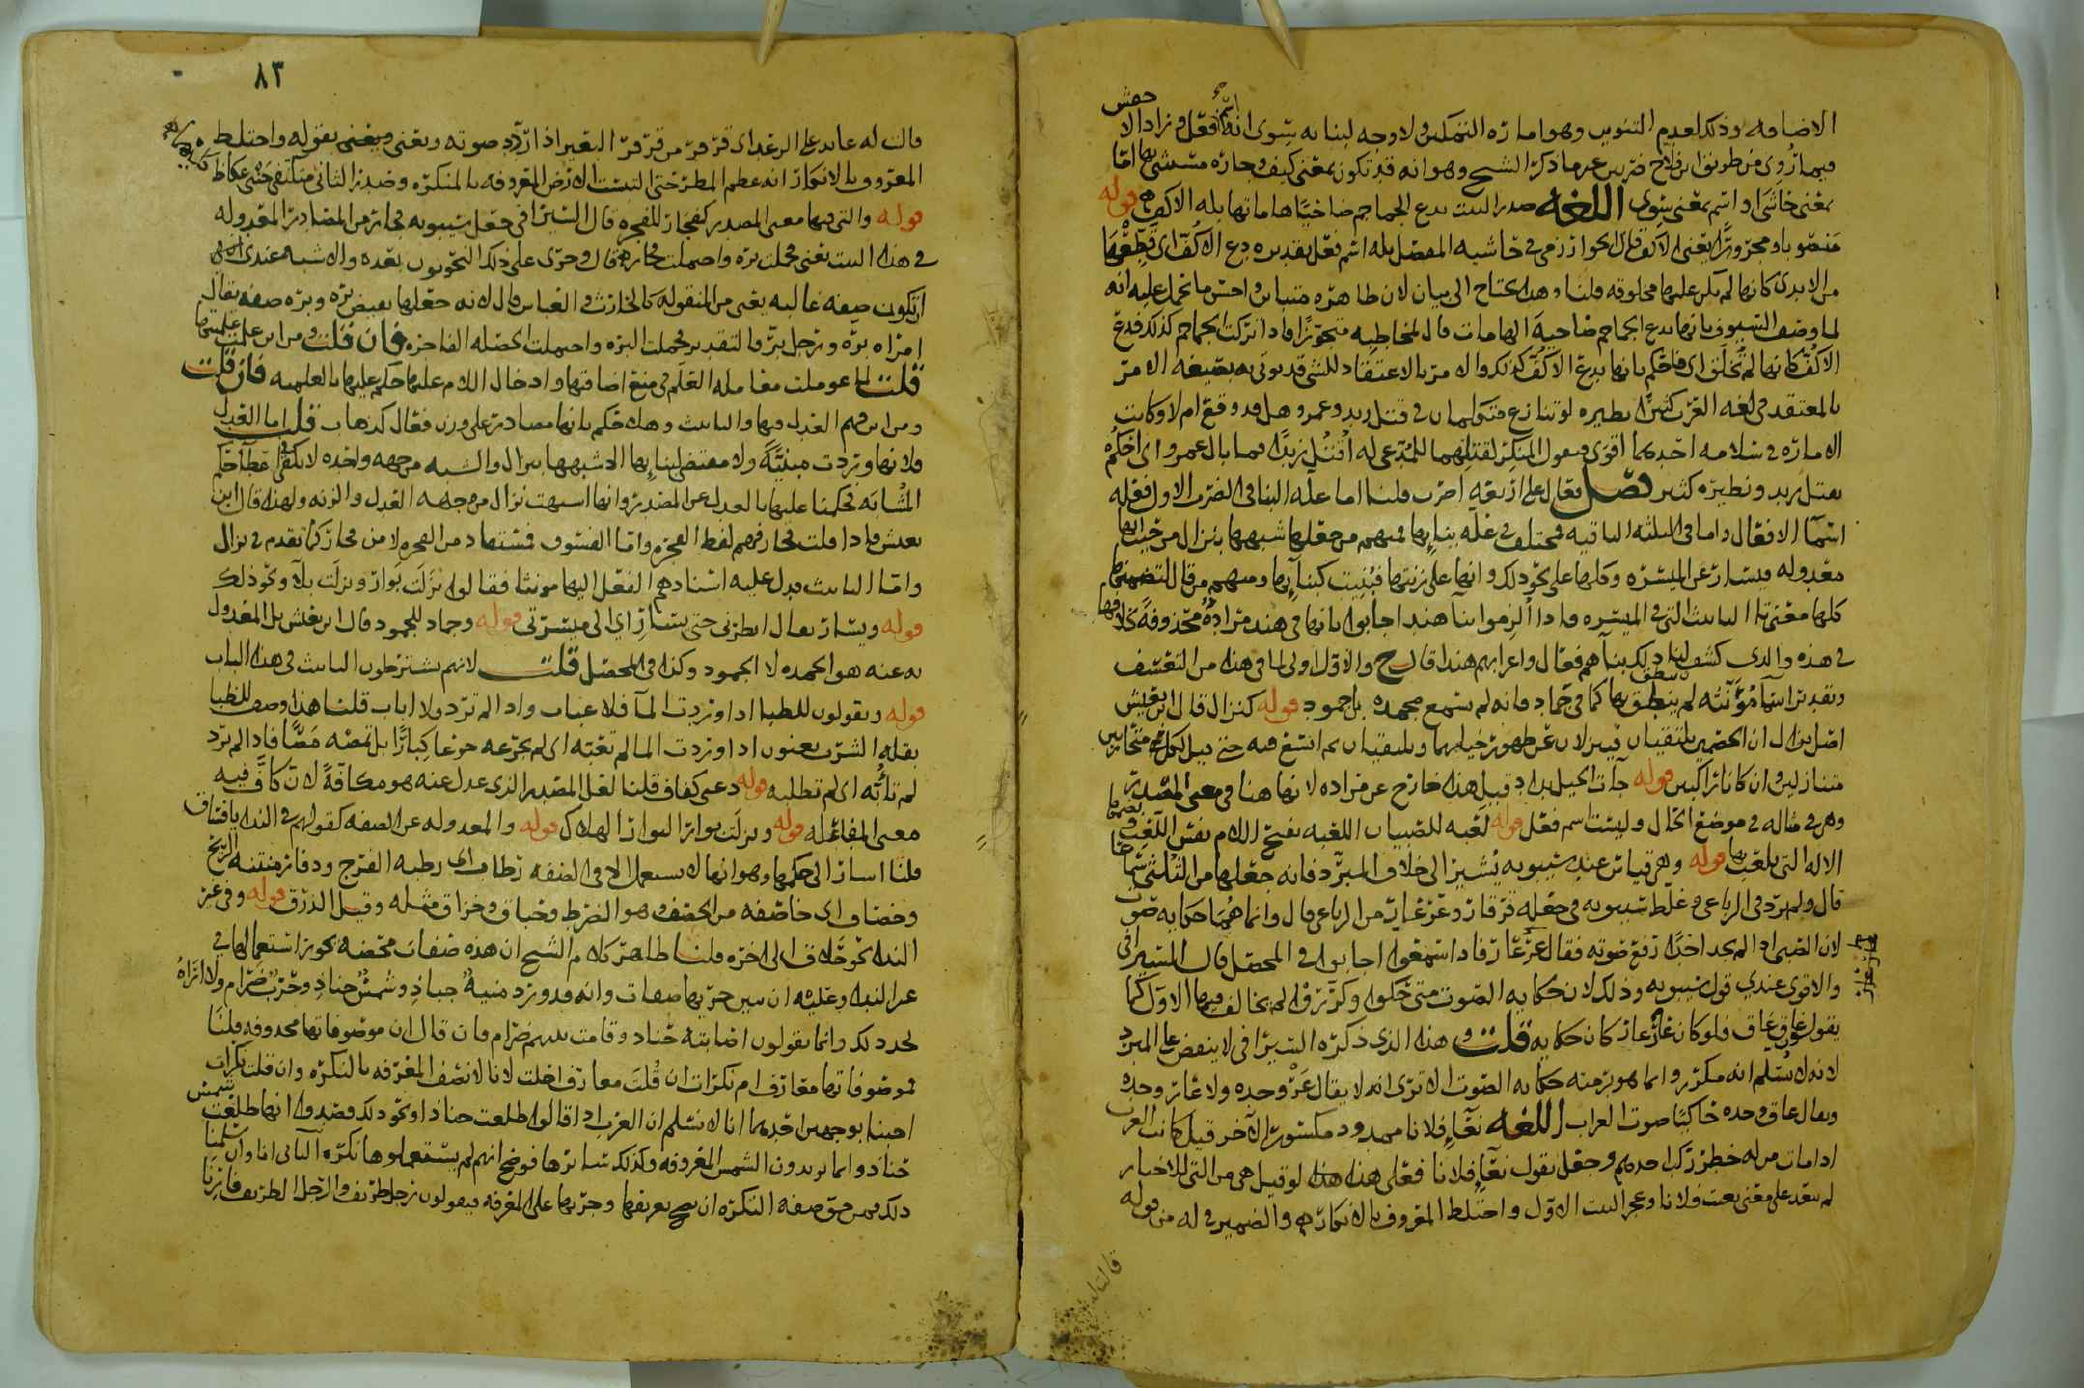 الاضافه وذلك لعدم التنوين وهو اماره التمكن ولا وجه لبنائه سوى انه اسم فعل وزاد الا
حفش
فيما روى من طريق ابن فلاح ضربين غير ما ذكر الشيخ وهو انه قد تكون بمعنى كيف وجاره مستثنى بها اما
بمعنى حاشى او اسم بمعنى سوى اللغه صدر البيت تدع الجماجم ضاحيا هاماتها بله الاكف قوله
منصوبا ومجرورا يعنى الاكف قال الخوارزمي في حاشيه المفصل بله اسم فعل تقديره دع الاكف اي قطعها
من الايدي كانها لم تكن عليها مخلوقه قلنا وهذا يحتاج الى بيان لان ظاهره متباين واحسن ما يحمل عليه انه
لما وصف السيوف بانها تدع الجماجم ضاحية الهامات قال لمخاطبه متجوزا فاذا تركت الجماجم كذلك فدع
الاكف كانها لم تخلق اي فاحكم بانها تدع الاكف كذلك والامر بالاعتقاد للشي قد يوتى به بصيغه الامر
بالمعتقد في لغه العرب كثيرا نظيره لو تنازع متكلمان في قتل زيد وعمرو هل قد وقع ام لا وكانت
الاماره في سلامه احدهما اقوى فيقول المنكر لقتلهما للمدعي له اقتل زيدا فما بال عمرو اى احكم
بقتل زيد ونظيره كثير فصل فعال على اربعه اضرب قلنا اما علة البنا في الضرب الاول فعله
اسما الافعال واما في الثلثه الباقيه فمختلف في علة بنائها فمنهم من جعلها شبهها بنزال من حيث انها
معدوله فيسار عن الميسره وكلها على نحو ذلك وانها على زنتها فبنيت كبنائها ومنهم من قال لتضمنها
كلها معنى تا التانيث التي في الميسره فاذا الزموا بنا هند اجابوا بانها في هند مراده محذوفة بخلافها
في هذه والذي كشف لنا ذلك بناهم فعال واعرابهم هندا قال ح والاول اولى لما في هذا من التعسف
وتقدير اسما مؤنثه لم ينطق بها كما في حماد فانه لم تسمع محمده بل حمود قوله كنزال قال ابن يعيش
اصل نزال ان الخصمين يلتقيان فينزلان عن ظهور خيلهما ويلتقيان ثم اتسع فيه حتى قيل لكل متحاربين
متنازلين وان كانا راكبين قوله جات الخيل بداد قيل هذا خارج عن مراده لانها هنا في معنى المصدر
وهي في مثاله في موضع الحال وليست اسم فعل قوله لعبه للصبيان اللعبه بفتح اللام نفس اللعب وبضمها
الاله التي يلعب بها قوله وهي قياس عند سيبويه يشير الى خلاف المبرد فانه جعلها من الثلثي سماعا
قال ولم ترد في الرباعي وغلط سيبويه في جعله قرقار وعرعار من الرباعي قال وانما هما حكايه صوت
لان الصبي اذا لم يجد احدا رفع صوته فقال عرعار فاذا سمعوه اجابوه في المحصل قال السيرافي
والاقوى عندي قول سيبويه وذلك لان حكايه الصوت متى حكوا وكرروا لم يخالف فيها الاول كما
يقول غاق غاق فلو كان عار عار كان حكايه قلت وهذا الذي ذكره السيرافي لا ينهض على المبرد
لانه لا نسلم انه مكرر وانما هو برمته حكايه الصوت الا ترى انه لا يقال عر وحده ولا عار وحده
ويقال غاق وحده حاكيا صوت الغراب اللغه نعاء فلانا ممدود مكسور الاخر قيل كانت العرب
اذا مات من له خطر ركب احدهم وجعل يقول نعاء فلانا فعلى هذا لو قيل هي من التي للاخبار
لم يبعد على معنى نعيت فلانا وعجز البيت الاول واختلط المعروف بالانكار والضمير في له من قوله
قالت له
٨٣
قالت له عائد على الرعد اى قرقر من قرقر البعير اذا ردد صوته ويعنى بقوله واختلط
المعروف بالانكار انه عظم المطر حتى التبست الارض المعروفه بالمنكره وصدر الثاني متكنفي جنبي عكاظ
قوله والتي فيها معنى المصدر كفجار للفجره قال السيرافي جعل سيبويه فجار من المصادر المعدوله
في هذا البيت يعنى فحملت بره واحتملت فجار قال وجرى على ذلك النحويون بعده والاشبه عندي
ان تكون صفه غالبه يعنى من المنقوله كالحارث والعباس قال لانه جعلها نقيض بره وبره صفه يقال
امراه برة ورجل بر فالتقدير فحملت البره واحتملت الخصله الفاجره فان قلت ومن اين علمت علميتها
قلت لما عوملت معامله العلم في منع اضافتها وادخال اللام عليها حكم عليها بالعلميه فان قلت
ومن اين فهم العدل فيها والتانيث وهلا حكم بانها مصادر على وزن فعال كذهاب قلت اما العدل
فلانها وردت مبنيّة ولا مقتضى لبنائها الا شبهها بنزال والشبه من جهه واحده لا يكفى في اعطا حكم
المشابه فحكمنا عليها بالعدل عن المصدر وانها اشبهت نزال من جهه العدل والزنه ولهذا قال ابن
يعيش فاذا قلت فجار فهم لفظ الفجره واما الفسوق فمستفاد من الفجره لا من فجار كما تقدم في نزال
واما التانيث فيدل عليه اسنادهم الفعل اليها مونثا فقالوا نزلت بوار ونزلت بلاء ونحو ذلك
قوله ويسار يقال انظرني حتى يسار اي الى ميسرتى قوله وجماد للجمود قال ابن يعيش بل المعدول
به عنه هو الجمده لا الجمود وكذا في المحصل قلت لانهم يشترطون التانيث في هذا الباب
قوله ويقولون للظبا اذا وردت الما فلا عباب واذا لم ترد ولا اباب قلنا هذا وصف للظبا
بقله الشرب يعنون اذا وردت الما لم تعبه اى لم تجرعه جرعا كبارا بل تمصه مصا فاذا لم ترد
لم تأبه اى لم تطلبه قوله دعنى كفاف قلنا لعل المصدر الذي عدل عنه هو مكافة لان كاف فيه
معنى المفاعله قوله ونزلت بوار البوار الهلاك قوله والمعدوله عن الصفه كقولهم في الندا يا فساق
قلنا اشار الى حكمها وهو انها لا تستعمل الا في الصفه رطاب اى رطبه الفرج ودفار منتنه الريح
وخضاف اى خاضفه من الخضف وهو الضرط وحباق وخزاق مثله وقيل الذرق قوله وفي غير
الندا نحو حلاق الى اخره قلنا ظاهر كلام الشيخ ان هذه صفات محضه يجوز استعمالها في
غير الندا وعليه ان يبين جريها صفات وانه قد ورد منية جباذ وشمس حناذ وحرب ضرام ولا اراه
يجد ذلك وانما يقولون اصابته حناد وقامت بينهم ضرام فان قال ان موصوفاتها محذوفه قلنا
فموصوفاتها معارف ام نكرات ان قلت معارف احلت لانا لا نصف المعرفه بالنكره وان قلت نكرات
اجبنا بوجهين احدهما انا لا نسلم ان العرب اذا قالوا طلعت حناذ او نحو ذلك قصدوا انها طلعت شمس
حناذ وانما يريدون الشمس المعروفه وكذلك سائرها فوضح انهم لم يستعملوها نكره الثاني انا وان سلمنا
ذلك فمن حق صفه النكره ان يصح تعريفها وجريها على المعرفه فيقولون رجل ظريف والرجل الظريف فارنا